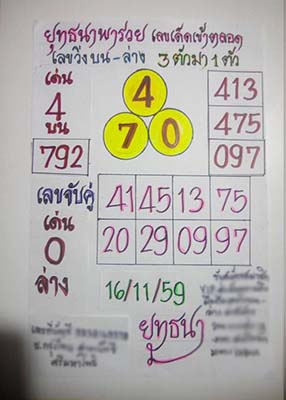 ยุทธนาพารวย เลขเด็ดเข้าตลอด
เลขวิ่งบน-ล่าง 3 ตัวมา 1 ตัว
เด่น
4
บน
792
4
7 0
413
475
097
เลขจับคู่
เด่น
0
ล่าง
41 45 13 75
20 29 09 97
16/11/59
ยุทธนา